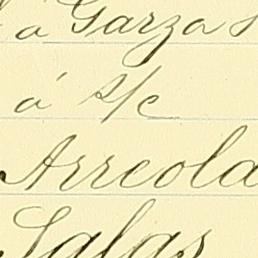 á Garza
á s/c
Arreola
Salas